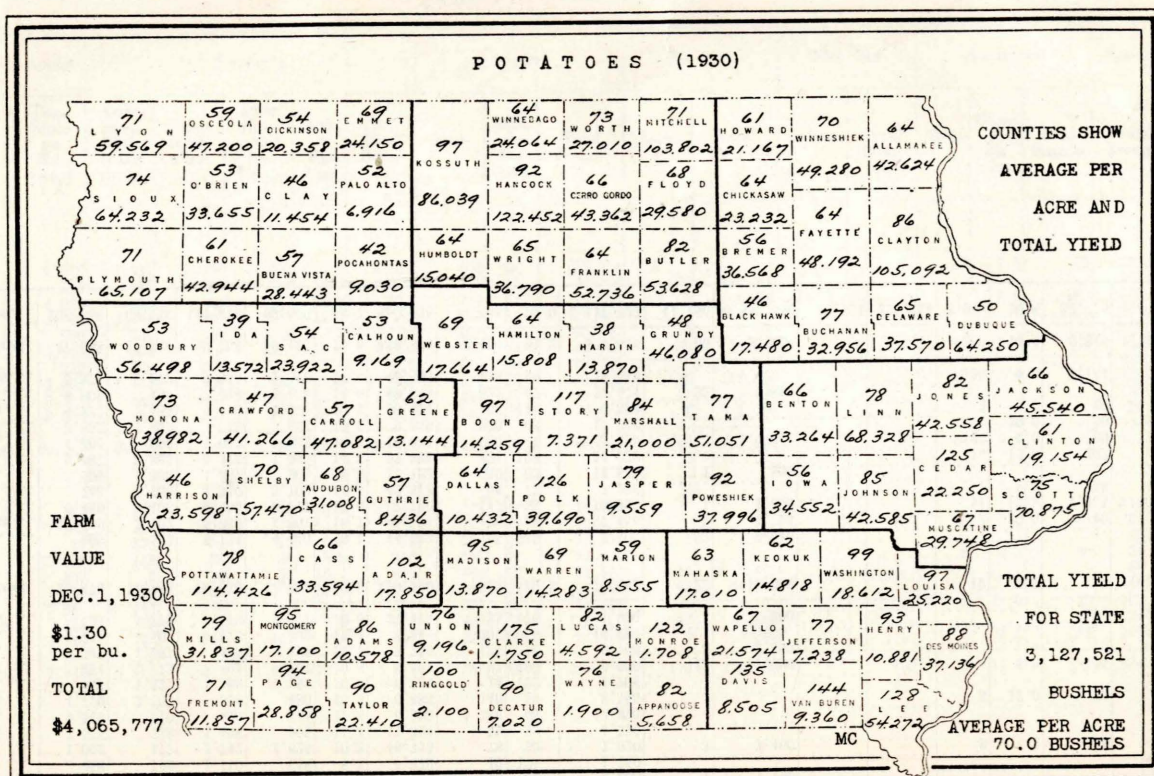 POTATOES (1930)
COUNTIES SHOW
AVERAGE PER
ACRE AND
TOTAL YIELD
71
LYON
59.569
59
OSCEOLA
47.200
54
DICKINSON
20.358
69
EMMET
24.150
97
KOSSUTH
86.039
64
WINNEBAGO
24.064
73
WORTH
27.010
71
MITCHELL
103.802
61
HOWARD
21.167
70
WINNESHIEK
49.280
64
ALLAMAKEE
42.624
74
SIOUX
64.232
53
O'BRIEN
33.655
46
CLAY
11.454
52
PALO ALTO
6.916
92
HANCOCK
122.452
66
CERRO GORDO
43.362
68
FLOYD
29.580
64
CHICKASAW
23.232
64
FAYETTE
48.192
86
CLAYTON
105.092
71
PLYMOUTH
65.107
61
CHEROKEE
42.944
57
BUENA VISTA
28.443
42
POCAHONTAS
9.030
64
HUMBOLDT
15.040
65
WRIGHT
36.790
64
FRANKLIN
52.736
82
BUTLER
53.628
56
BREMER
36.568
53
WOODBURY
56.498
39
IDA
13.572
54
SAC
23.922
53
CALHOUN
9.169
69
WEBSTER
17.664
64
HAMILTON
15.808
38
HARDIN
13.870
48
GRUNDY
46.080
46
BLACK HAWK
17.480
77
BUCHANAN
32.956
65
DELAWARE
37.570
50
DUBUQUE
64.250
73
MONONA
38.982
47
CRAWFORD
41.266
57
CARROLL
47.082
62
GREENE
13.144
97
BOONE
14.259
117
STORY
7.371
84
MARSHALL
21.000
77
TAMA
51.051
66
BENTON
33.264
78
LINN
68.328
82
JONES
42.558
66
JACKSON
45.540
61
CLINTON
19.154
46
HARRISON
23.598
70
SHELBY
57.470
68
AUDUBON
31.008
57
GUTHRIE
8.436
64
DALLAS
10.432
126
POLK
39.690
79
JASPER
9.559
92
POWESHIEK
37.996
56
IOWA
34.552
85
JOHNSON
42.585
125
CEDAR
22.250
75
SCOTT
70.875
67
MUSCATINE
29.748
78
POTTAWATTAMIE
114.426
66
CASS
33.594
102
ADAIR
17.850
95
MADISON
13.870
69
WARREN
14.283
59
MARION
8.555
63
MAHASKA
17.010
62
KEOKUK
14.818
99
WASHINGTON
18.612
97
LOUISA
25.220
79
MILLS
31.837
95
MONTGOMERY
17.100
86
ADAMS
10.578
76
UNION
9.196
175
CLARKE
1.750
82
LUCAS
4.592
122
MONROE
1.708
67
WAPELLO
21.574
77
JEFFERSON
7.238
93
HENRY
10.881
88
DES MOINES
37.136
71
FREMONT
11.857
94
PAGE
28.858
90
TAYLOR
22.410
100
RINGGOLD
2.100
90
DECATUR
7.020
76
WAYNE
1.900
82
APPANOOSE
5.658
135
DAVIS
8.505
144
VAN BUREN
9.360
128
LEE
54.272
FARM
VALUE
DEC.1,1930
$1.30
per bu.
TOTAL
$4,065,777
TOTAL YIELD
FOR STATE
3,127,521
BUSHELS
AVERAGE PER ACRE
70.0 BUSHELS
MC